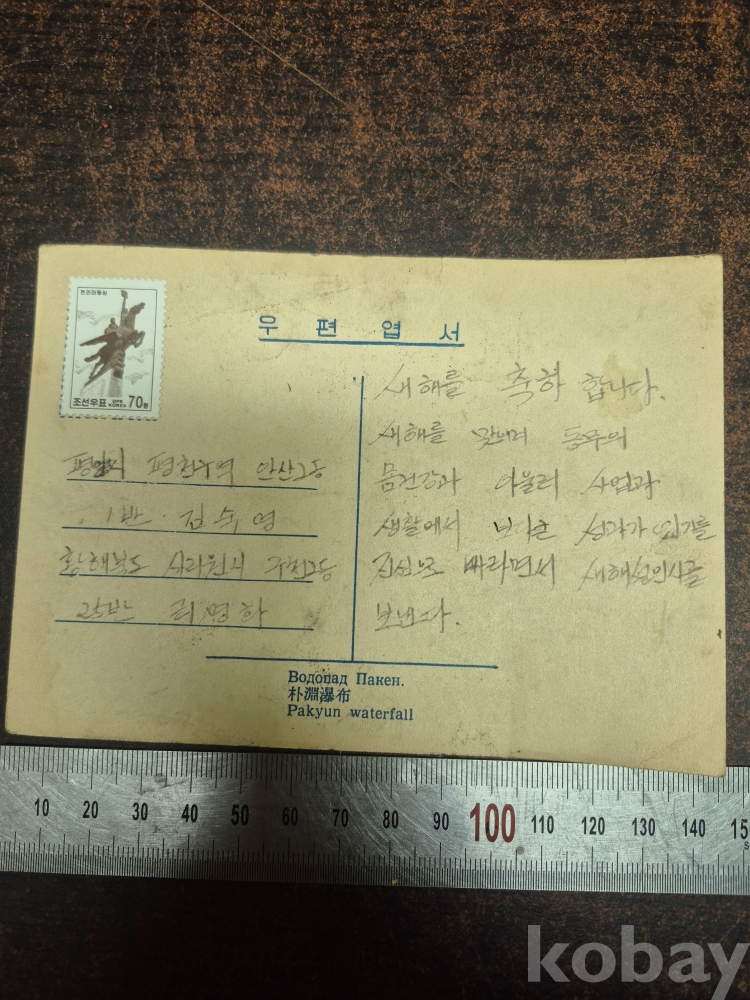 천리마동상
조선우표
DPR
KOREA
70원
우편엽서
평양시 평천구역 안산2동
1반 김수영
황해북도 사리원시 구천2동
25반 리명하
새해를 축하 합니다.
새해를 맞으며 동무의
몸건강과 아울러 사업과
생활에서 보다 큰 성과가 있기를
진심으로 바라면서 새해설인사를
보낸다.
Водопад Пакен.
朴淵瀑布
Pakyun waterfall
10 20 30 40 50 60 70 80 90 100 110 120 130 140 15
S
kobay